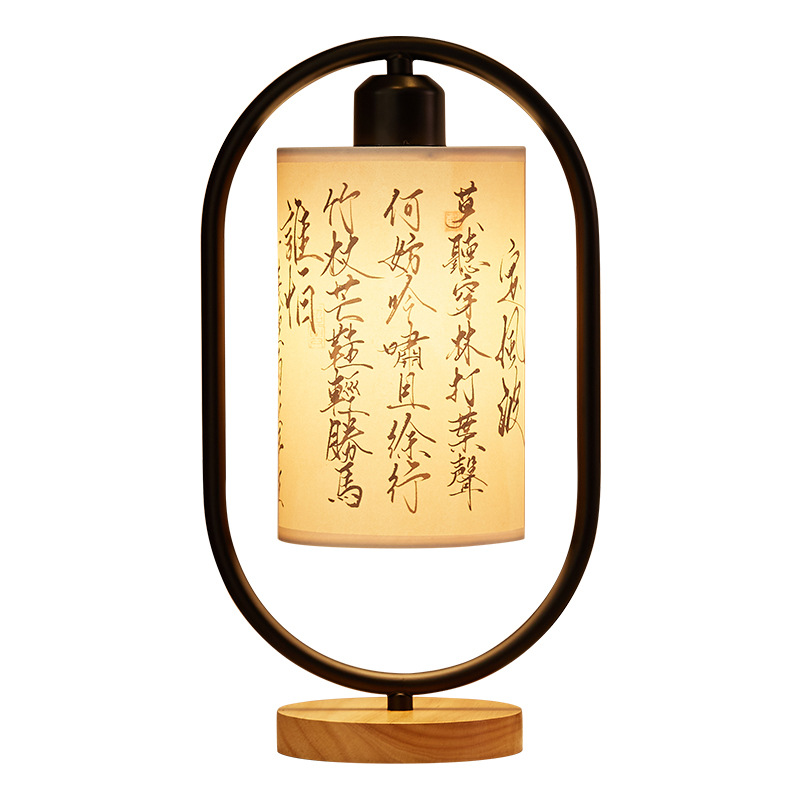 定風波
莫聽穿林打葉聲
何妨吟嘯且徐行
竹杖芒鞋輕勝馬
誰怕